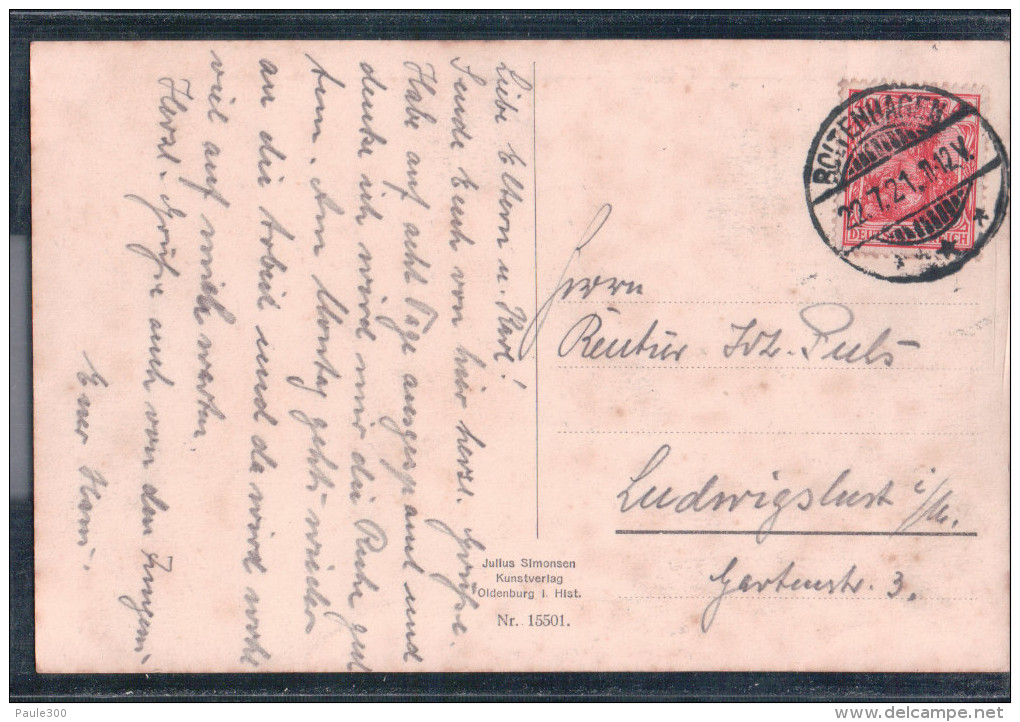 Liebe Eltern u. Karl!
Sende Euch von hier herzl. Grüße.
Habe auf acht Tage ausgespannt und
denke ich wird mir die Ruhe gut
tun. Am Montag geht's wieder
an die Arbeit und da wird wohl
viel auf mich warten
Herzl. Grüße auch von den Jungens
Euer Hans.
Herrn
Rentier Joh. Puls
Ludwigslust i/M.
Gartenstr. 3.
BOLTENHAGEN
22.7.21.11-12V.
DEUTSCHES REICH
Julius Simonsen
Kunstverlag
Oldenburg i. Hlst.
Nr. 15501.
Paule300
delcampe.net